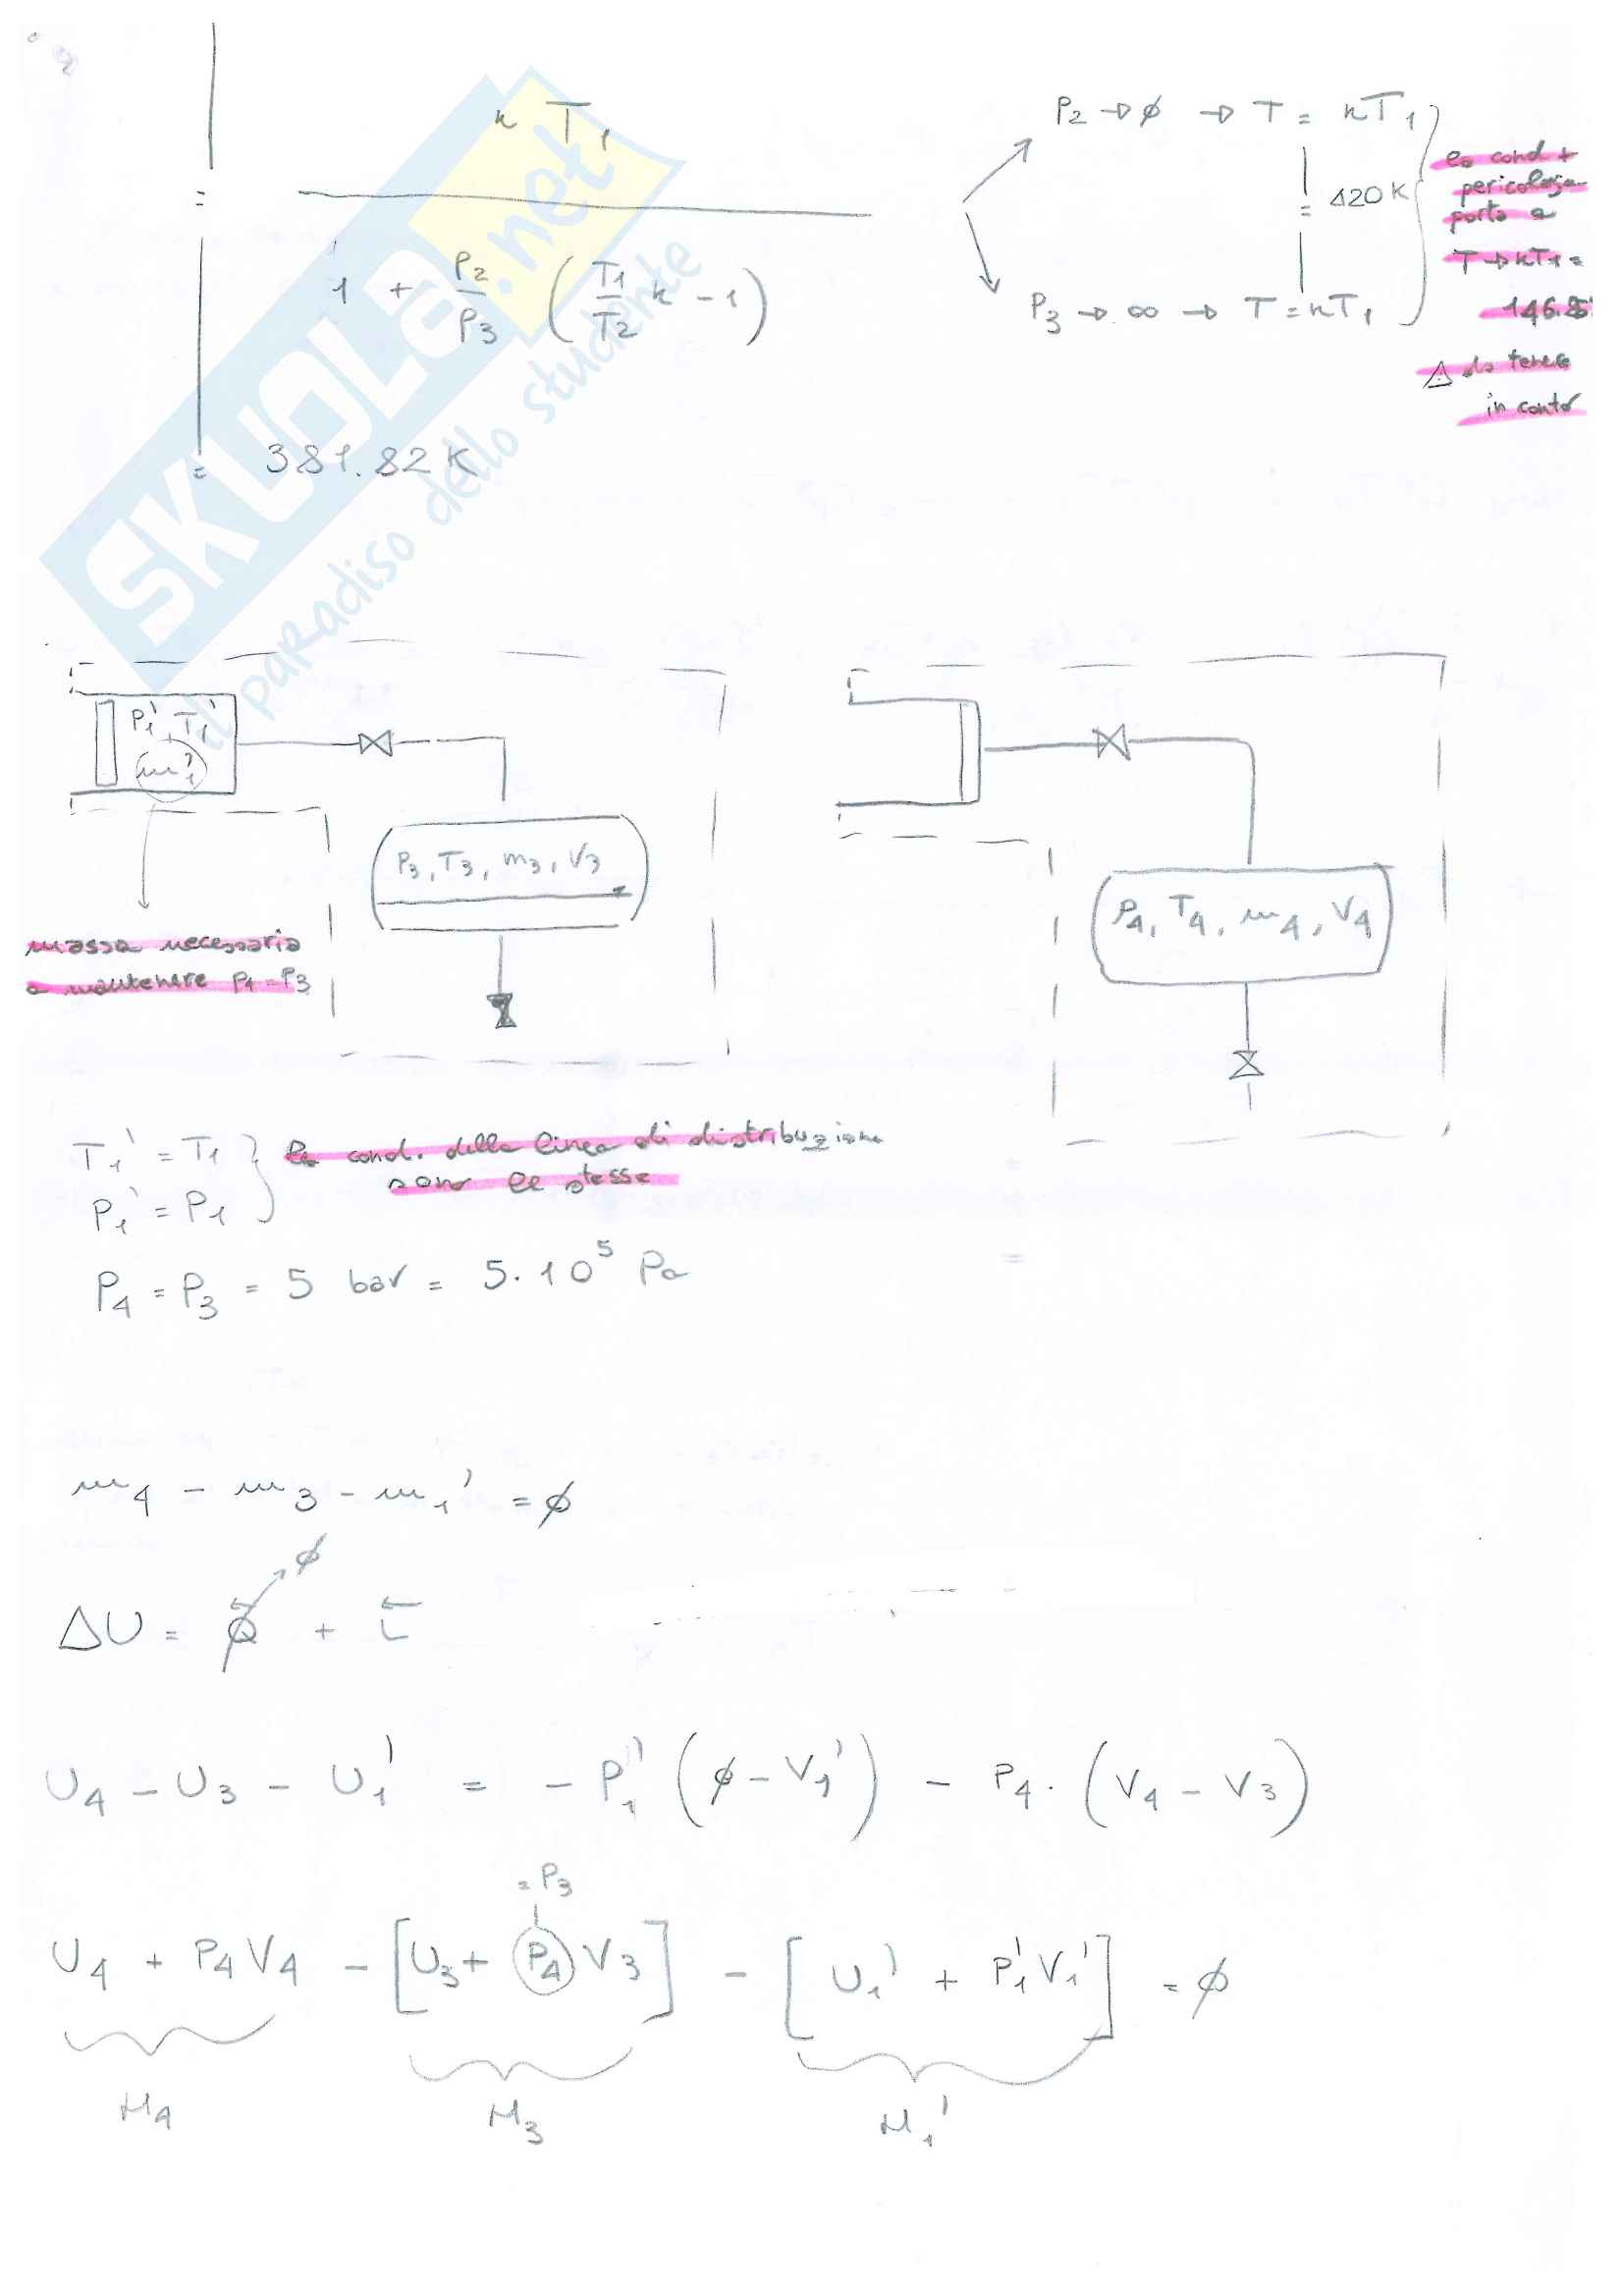 = k T₁
1 + P₂/P₃ (T₁/T₂ k - 1)
= 381.82 K
P₂ → ø → T = kT₁
= 420 K
P₃ → ∞ → T = kT₁
la cond +
pericolosa
porta a
T → kT₁ =
146.85
⚠ da tenere
in conto
SKUOLA.net
il paradiso dello studente
P₁', T₁'
m₁'
P₃, T₃, m₃, V₃
P₄, T₄, m₄, V₄
massa necessaria
a mantenere P₄ = P₃
T₁' = T₁
P₁' = P₁
le cond. della linea di distribuzione
sono le stesse
P₄ = P₃ = 5 bar = 5·10⁵ Pa
m₄ - m₃ - m₁' = ø
ø
ΔU = Q← + L←
U₄ - U₃ - U₁' = - P₁' (ø - V₁') - P₄ · (V₄ - V₃)
= P₃
U₄ + P₄V₄ - [U₃ + P₄ V₃] - [U₁' + P₁'V₁'] = ø
H₄ H₃ H₁'